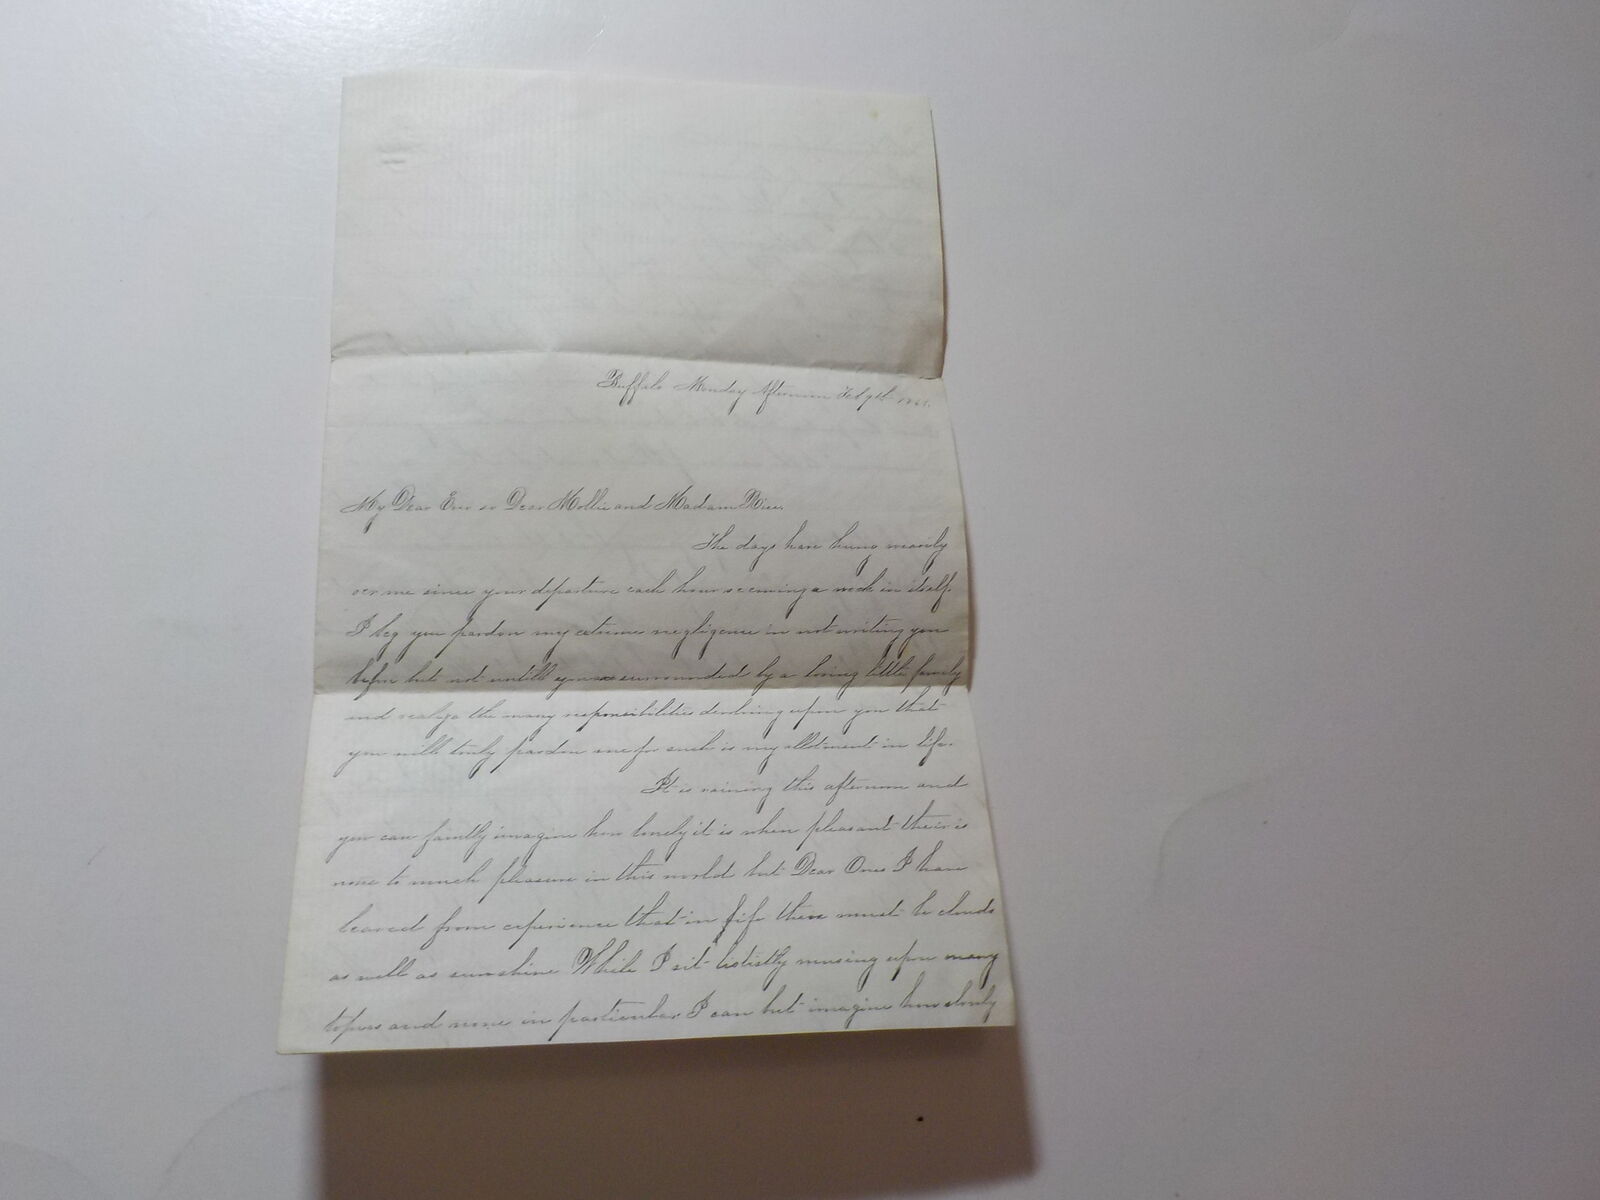 Buffalo Monday Afternoon Feb 9th
My Dear Ever so Dear Mollie and Madam Rice.
The days have hung wearily
over me since your departure each hour seeming a week in itself.
I beg you pardon my extreme negligence in not writing you
before but not untill your surrounded by a loving little family
and realize the many responsibilities devolving upon you that
you will truly pardon me for such is my allotment in life.
It is raining this afternoon and
you can faintly imagine how lonely it is when pleasant their is
none to much pleasure in this world but Dear Ones I have
learned from experience that in life there must be clouds
as well as sunshine While I sit listlessly musing upon many
topics and none in particular I can but imagine how slowly